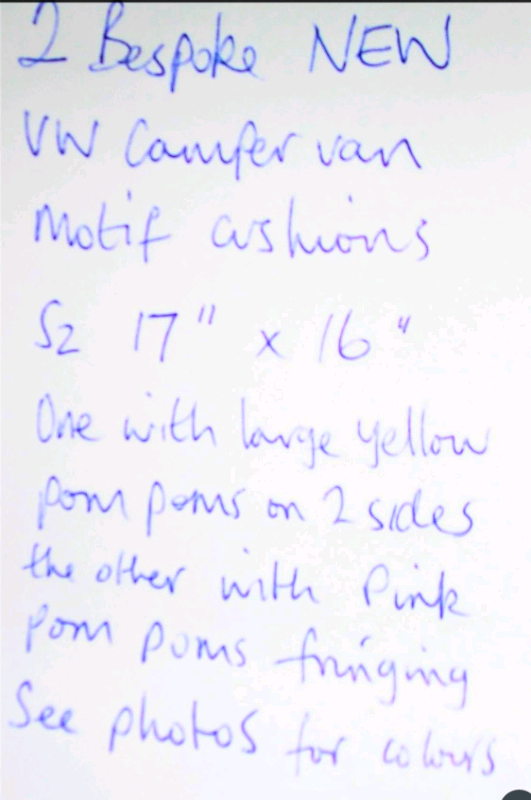 2 Bespoke NEW
VW Camper van
Motif cushions
Sz 17" x 16"
One with large yellow
pom poms on 2 sides
the other with Pink
pom poms fringing
See photos for colours